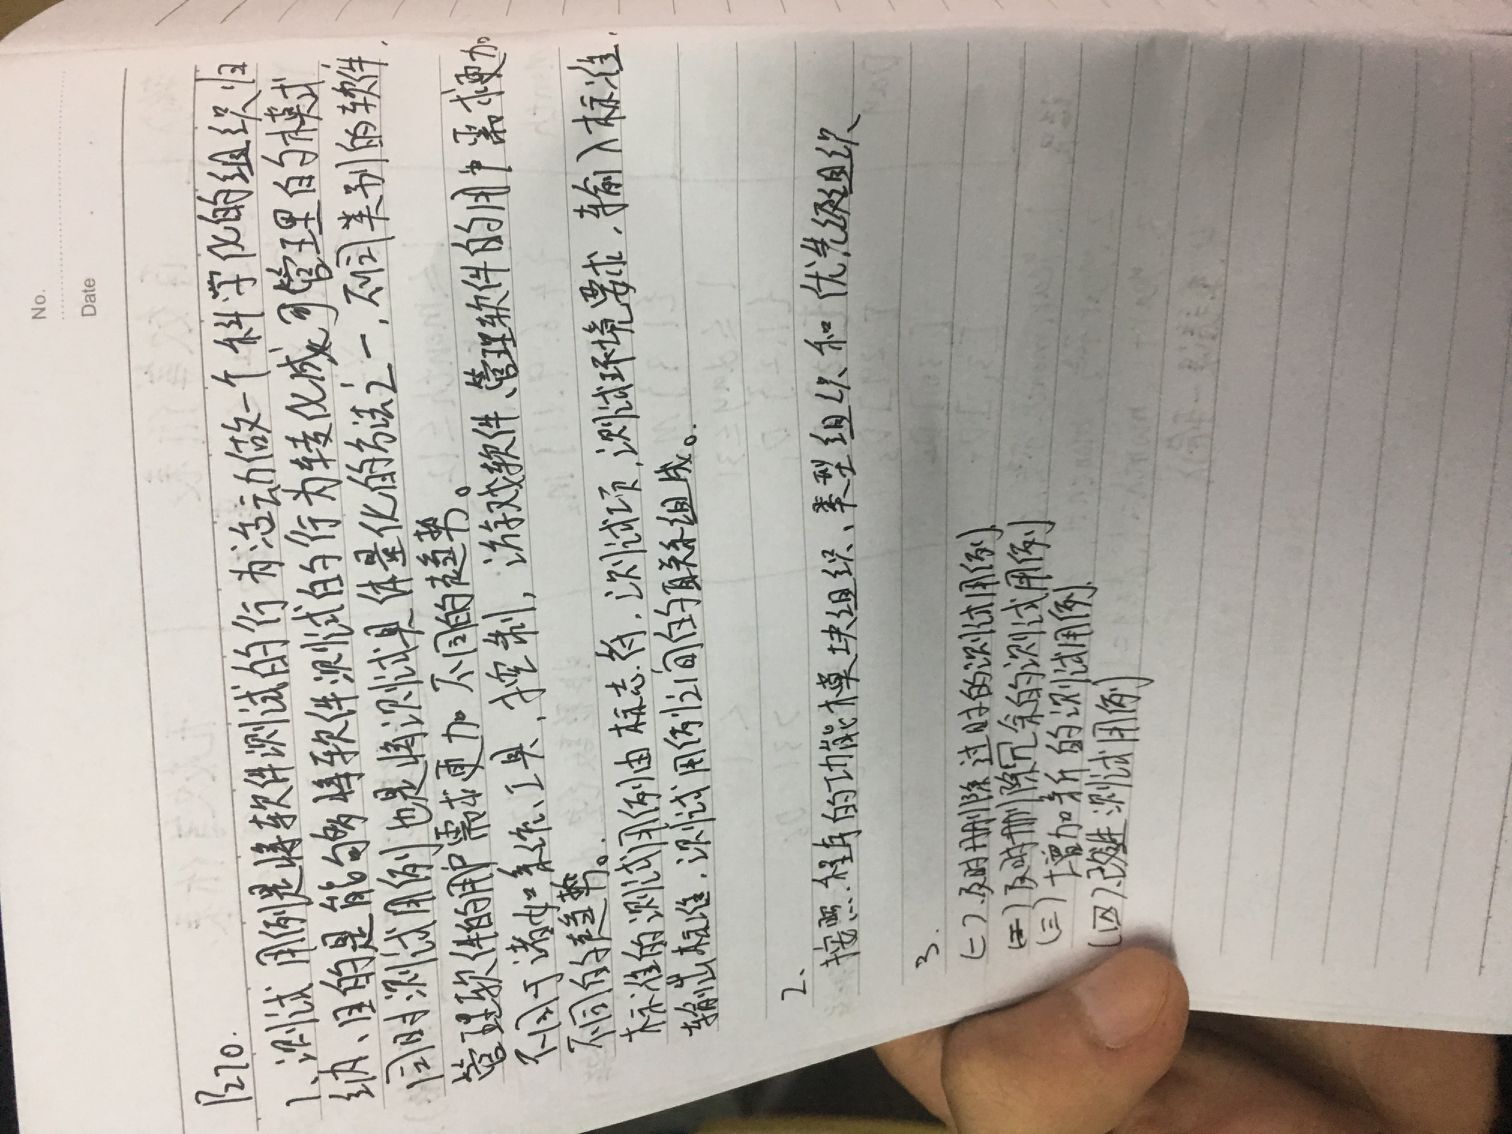 No.
Date
P270.
1、测试用例是将软件测试的行为活动做一个科学化的组织归
纳、目的是能够将软件测试的行为转化成可管理的模式
同时测试用例也是将测试具体量化的方法之一，不同类别的软件，
管理软件的用户需求更加 不同的趋势。
不同于诸如系统、工具、控制，游戏软件、管理软件的用户需求更加
不同的趋势。
标准的测试用例由标志符，测试项，测试环境要求，输入标准，
输出标准，测试用例之间的关联组成。
2、
按照程序的功能模块组织、类型组织和优先级组织
3.
(一)及时删除过时的测试用例
(二)及时删除冗余的测试用例
(三)增加新的测试用例
(四)改进测试用例